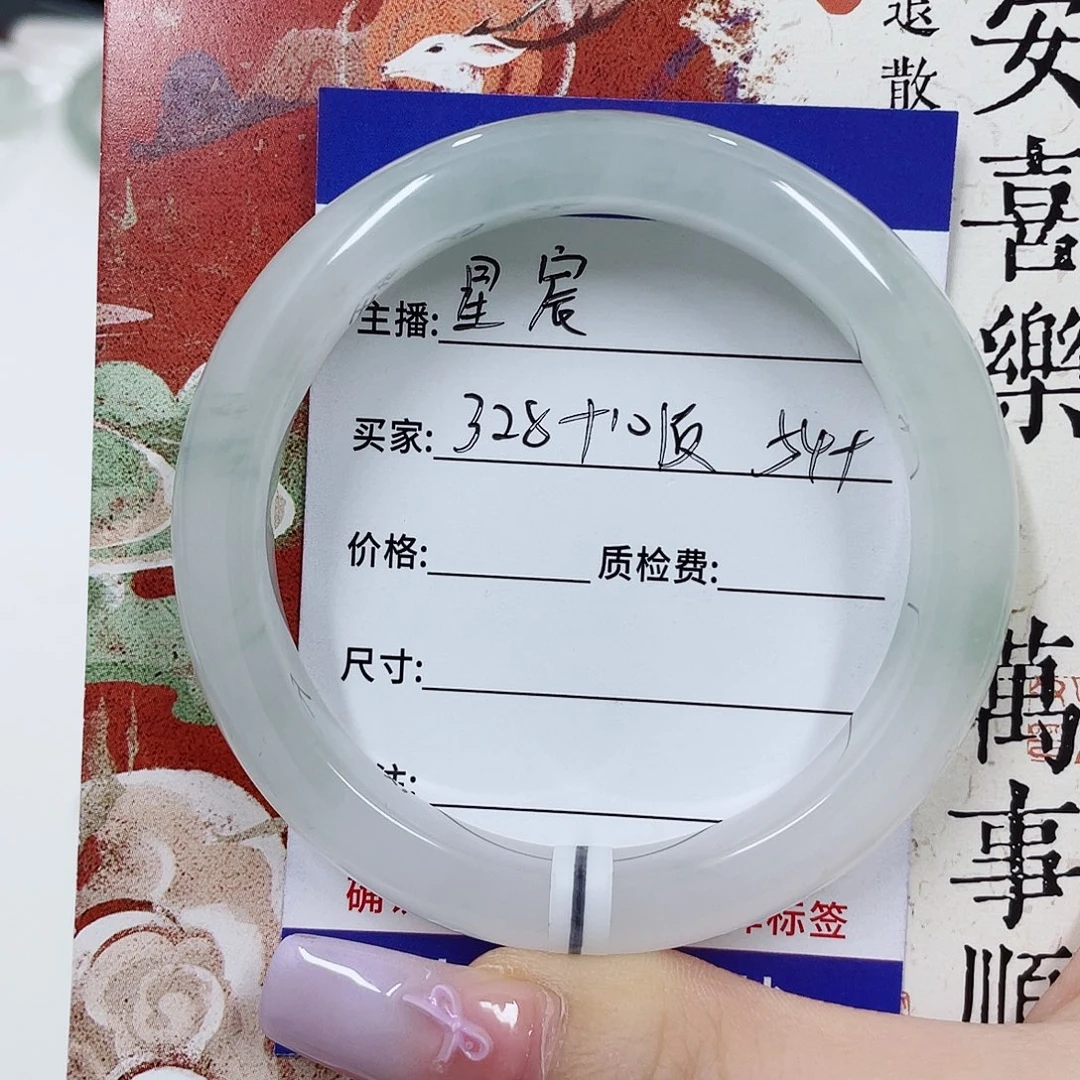 退散
安喜樂
萬事順
主播:星宸
买家:328+10返 54+
价格:
质检费:
尺寸:
确
标签